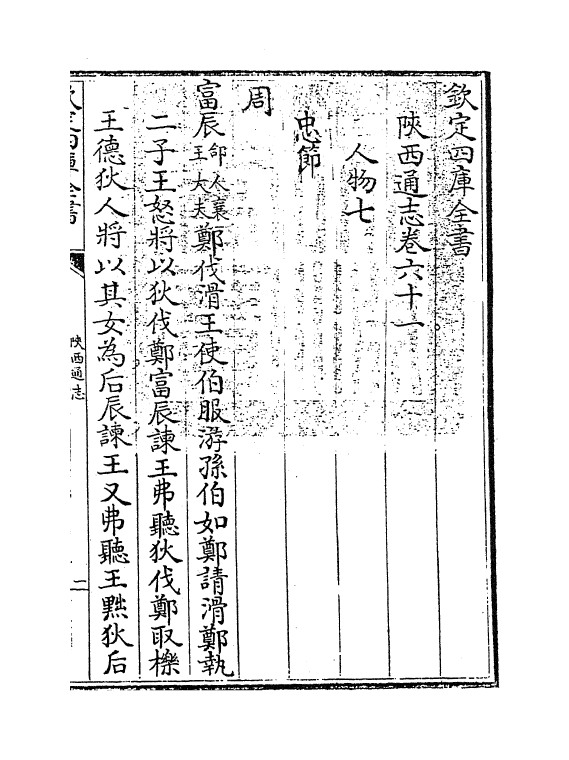 欽定四庫全書
陜西通志卷六十一
人物七
忠節
周
富辰郃人襄王大夫鄭伐滑王使伯服游孫伯如鄭請滑鄭執
二子王怒將以狄伐鄭富辰諫王弗聽狄伐鄭取櫟
王德狄人將以其女為后辰諫王又弗聽王黜狄后
欽定四庫全書
陜西通志